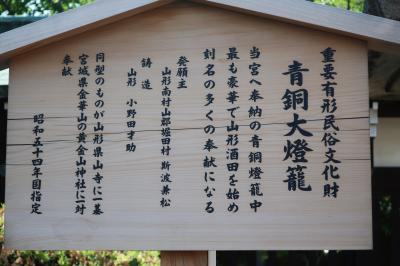 重要有形民俗文化財
青銅大燈籠
当宮へ奉納の青銅燈籠中
最も豪華で山形酒田を始め
刻名の多くの奉献になる
発願主
山形南村山郡堀田村 斯波兼松
鋳造
山形 小野田才助
同型のものが山形県山寺に一基
宮城県金華山の黄金山神社に一対
奉献
昭和五十四年国指定